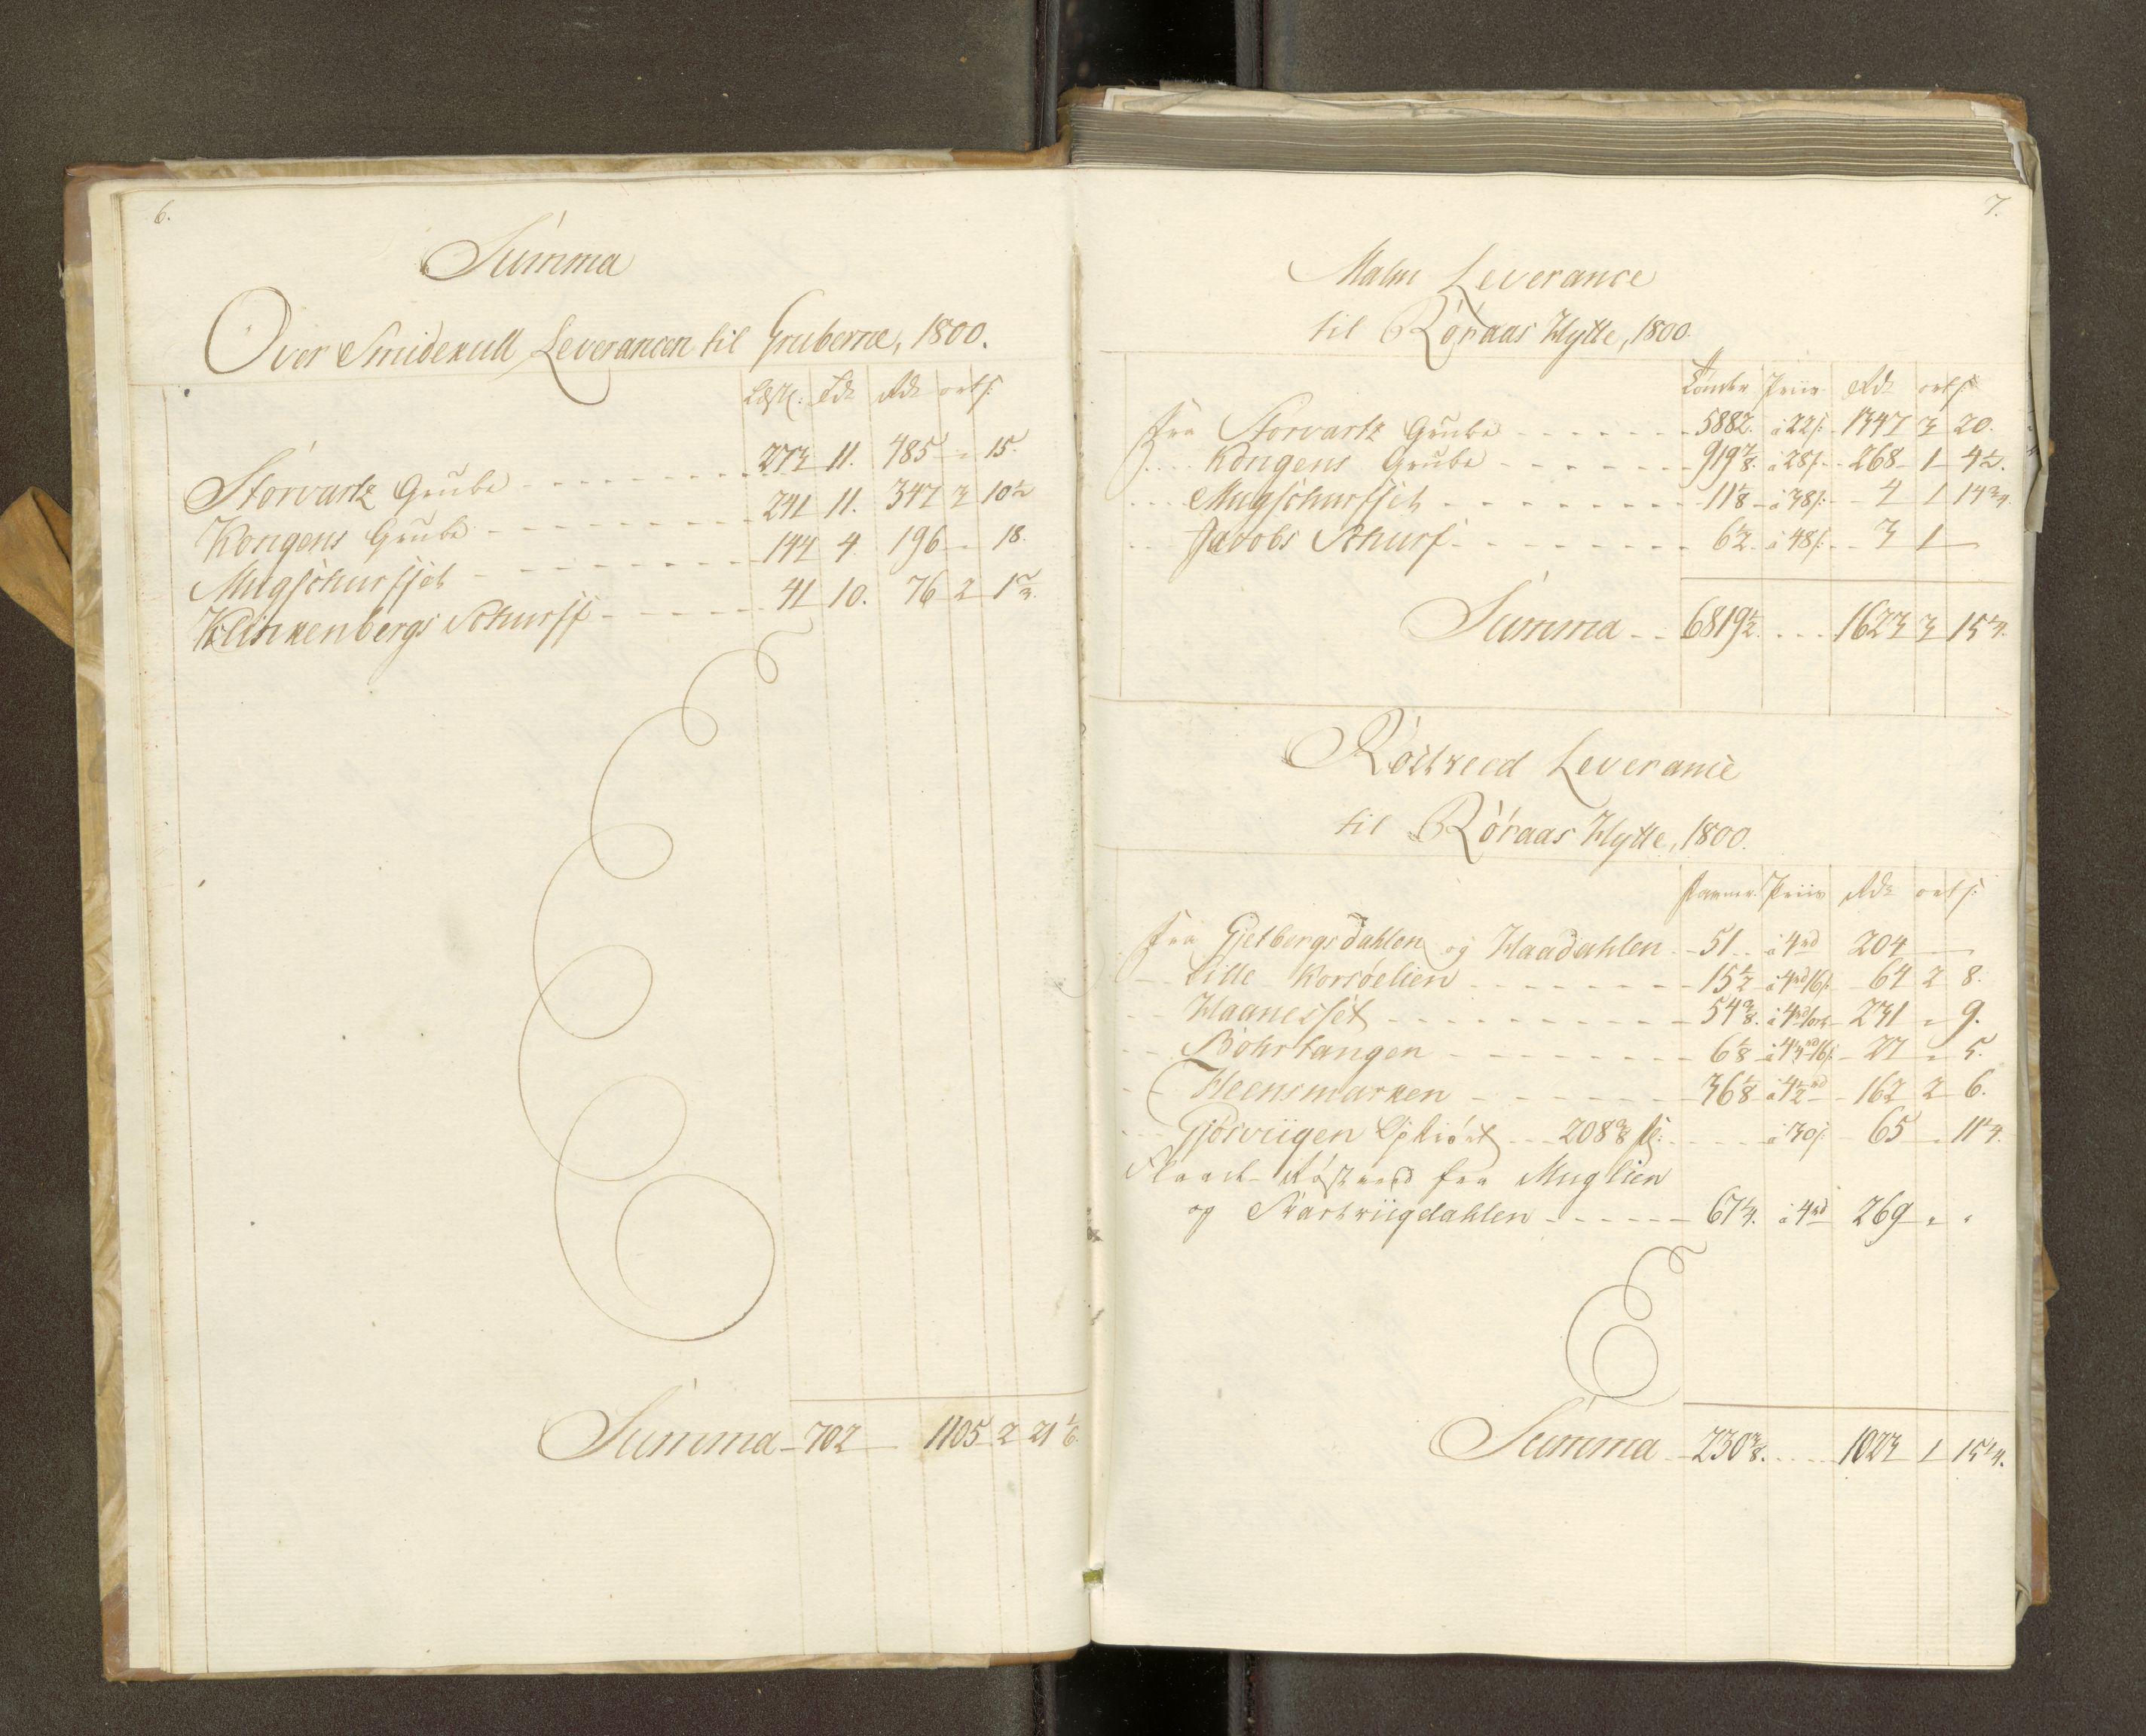 6.
Summa
Over Smidekull Leverancen til Gruberne, 1800.
Læster Tdr Rdr ort s:
Storvartz Grube 273 11. 485 " 15.
Kongens Grube 241 11. 347 3 10½
Mugschurfset 144 4. 196 " 18.
Klinkenbergs Schurff 41 10. 76 2 1⅔.
Summa 702 1105 2 21 1/6.
7.
Malm Leverance
til Røraas Hytte, 1800.
Tønder Priis Rdr ort s:
fra Storvartz Grube 5882. à 22 s: 1347 3 20.
Kongens Grube 919⅞. à 28 s: 268 1 4½.
Mugschurfset 11⅛ à 38 s: 4 1 14¾.
Jacobs Schurf 6½. à 48 s: 3 1
Summa 6819½. 1623 3 15¼.
Röstveed Leverance
til Røraas Hytte, 1800.
Favner. Priis Rdr ort s:
fra Gjetbergsdahlen og Haadahlen 51. à 4rd 204
Lille Korsøelien 15½ à 4rd 16 s: 64 2 8.
Haanesset 54⅜. à 4rd 1ort 231 " 9.
Bøhrtangen 6⅛ 27 " 5.
Heensmarken 36⅛ à 4½rd 162 2 6.
Gjösviigen 208⅜ à 30 s: 65 " 11¼.
Röstveed fra Muglien
og Svartviigdahlen 67¼. à 4rd 269 " "
Summa 230⅜. 1023 1 15¼.